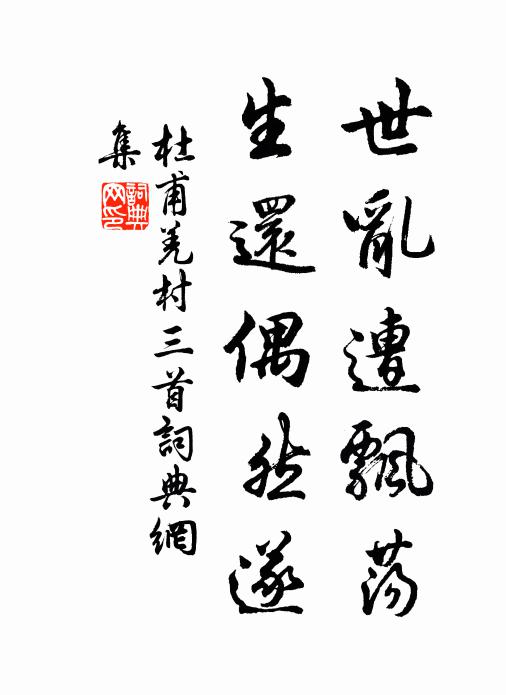 世亂遭飄蕩
生還偶然遂
杜甫羌村三首詞典網
集
詞典
网印